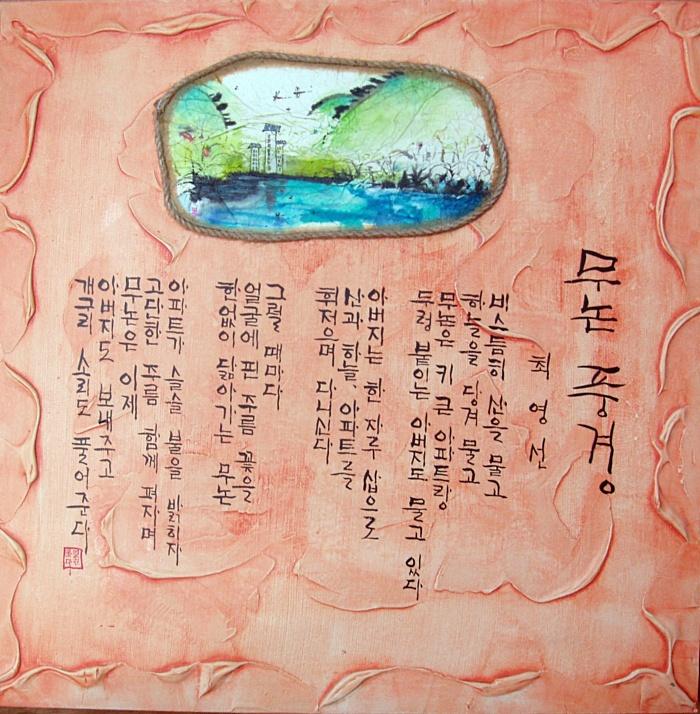 무논 풍경
최영선
비스듬히 산을 물고
하늘을 당겨 물고
무논은 키 큰 아파트랑
두렁 붙이는 아버지도 물고 있다
아버지는 한 자루 삽으로
산과 하늘, 아파트를
휘저으며 다니신다
그럴 때마다
얼굴에 핀 주름 꽃을
한없이 닮아가는 무논
아파트가 슬슬 불을 밝히자
고단한 주름 함께 펴지며
무논은 이제
아버지도 보내주고
개구리 소리도 풀어준다